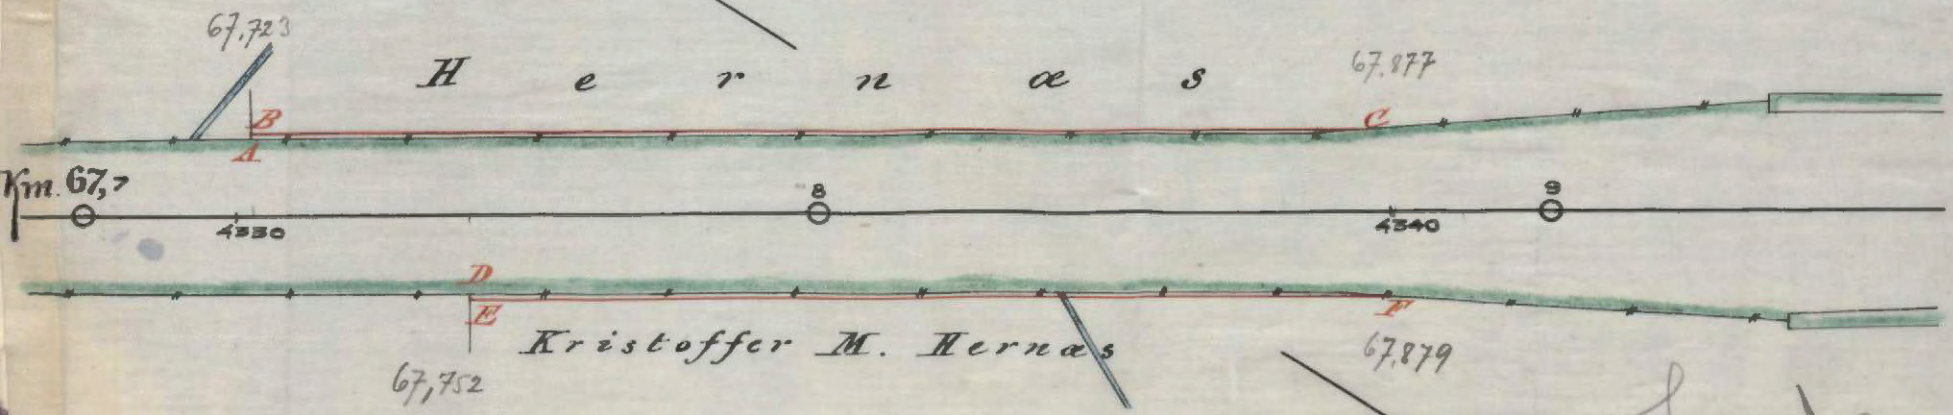 67,723
H e r n æ s
67.877
B
C
A
Km. 67,7
8
9
4330
4340
D
E
F
Kristoffer M. Hernæs
67,752
67,879